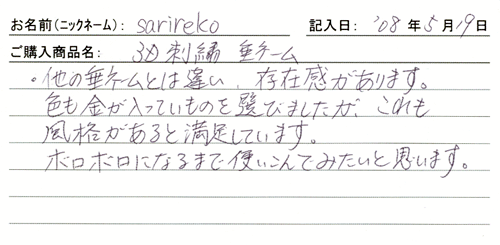 お名前(ニックネーム): sarireko 記入日: '08年5月19日
ご購入商品名: 3D刺繍 垂ネーム
・他の垂ネームとは違い、存在感があります。
色も金が入っていものを選びましたが、これも
風格があると満足しています。
ボロボロになるまで使いこんでみたいと思います。